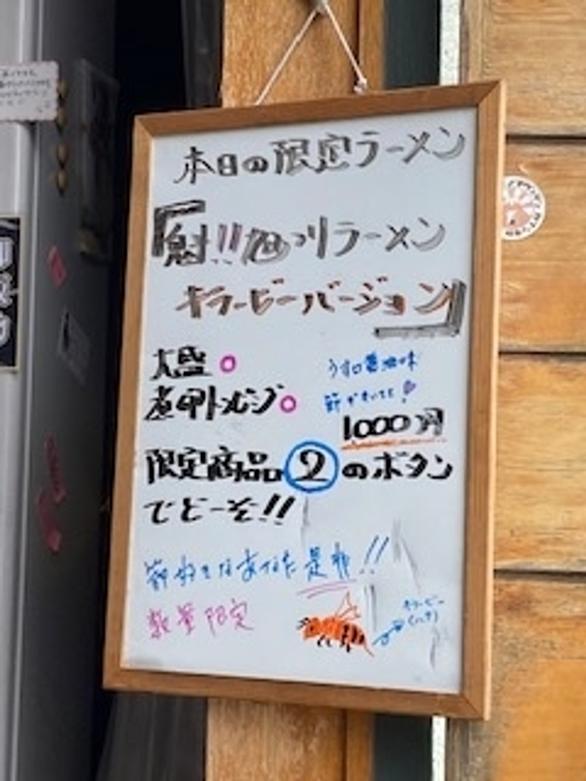 本日の限定ラーメン
『魁!!旭っ子ラーメン
キラービーバージョン』
大盛○
うす口醤油味
煮卵トッピング○
節がきいてる!
1000円
限定商品②のボタン
でどーぞ!!
節好きなあなた是非!!
数量限定
キラービー
(ハチ)